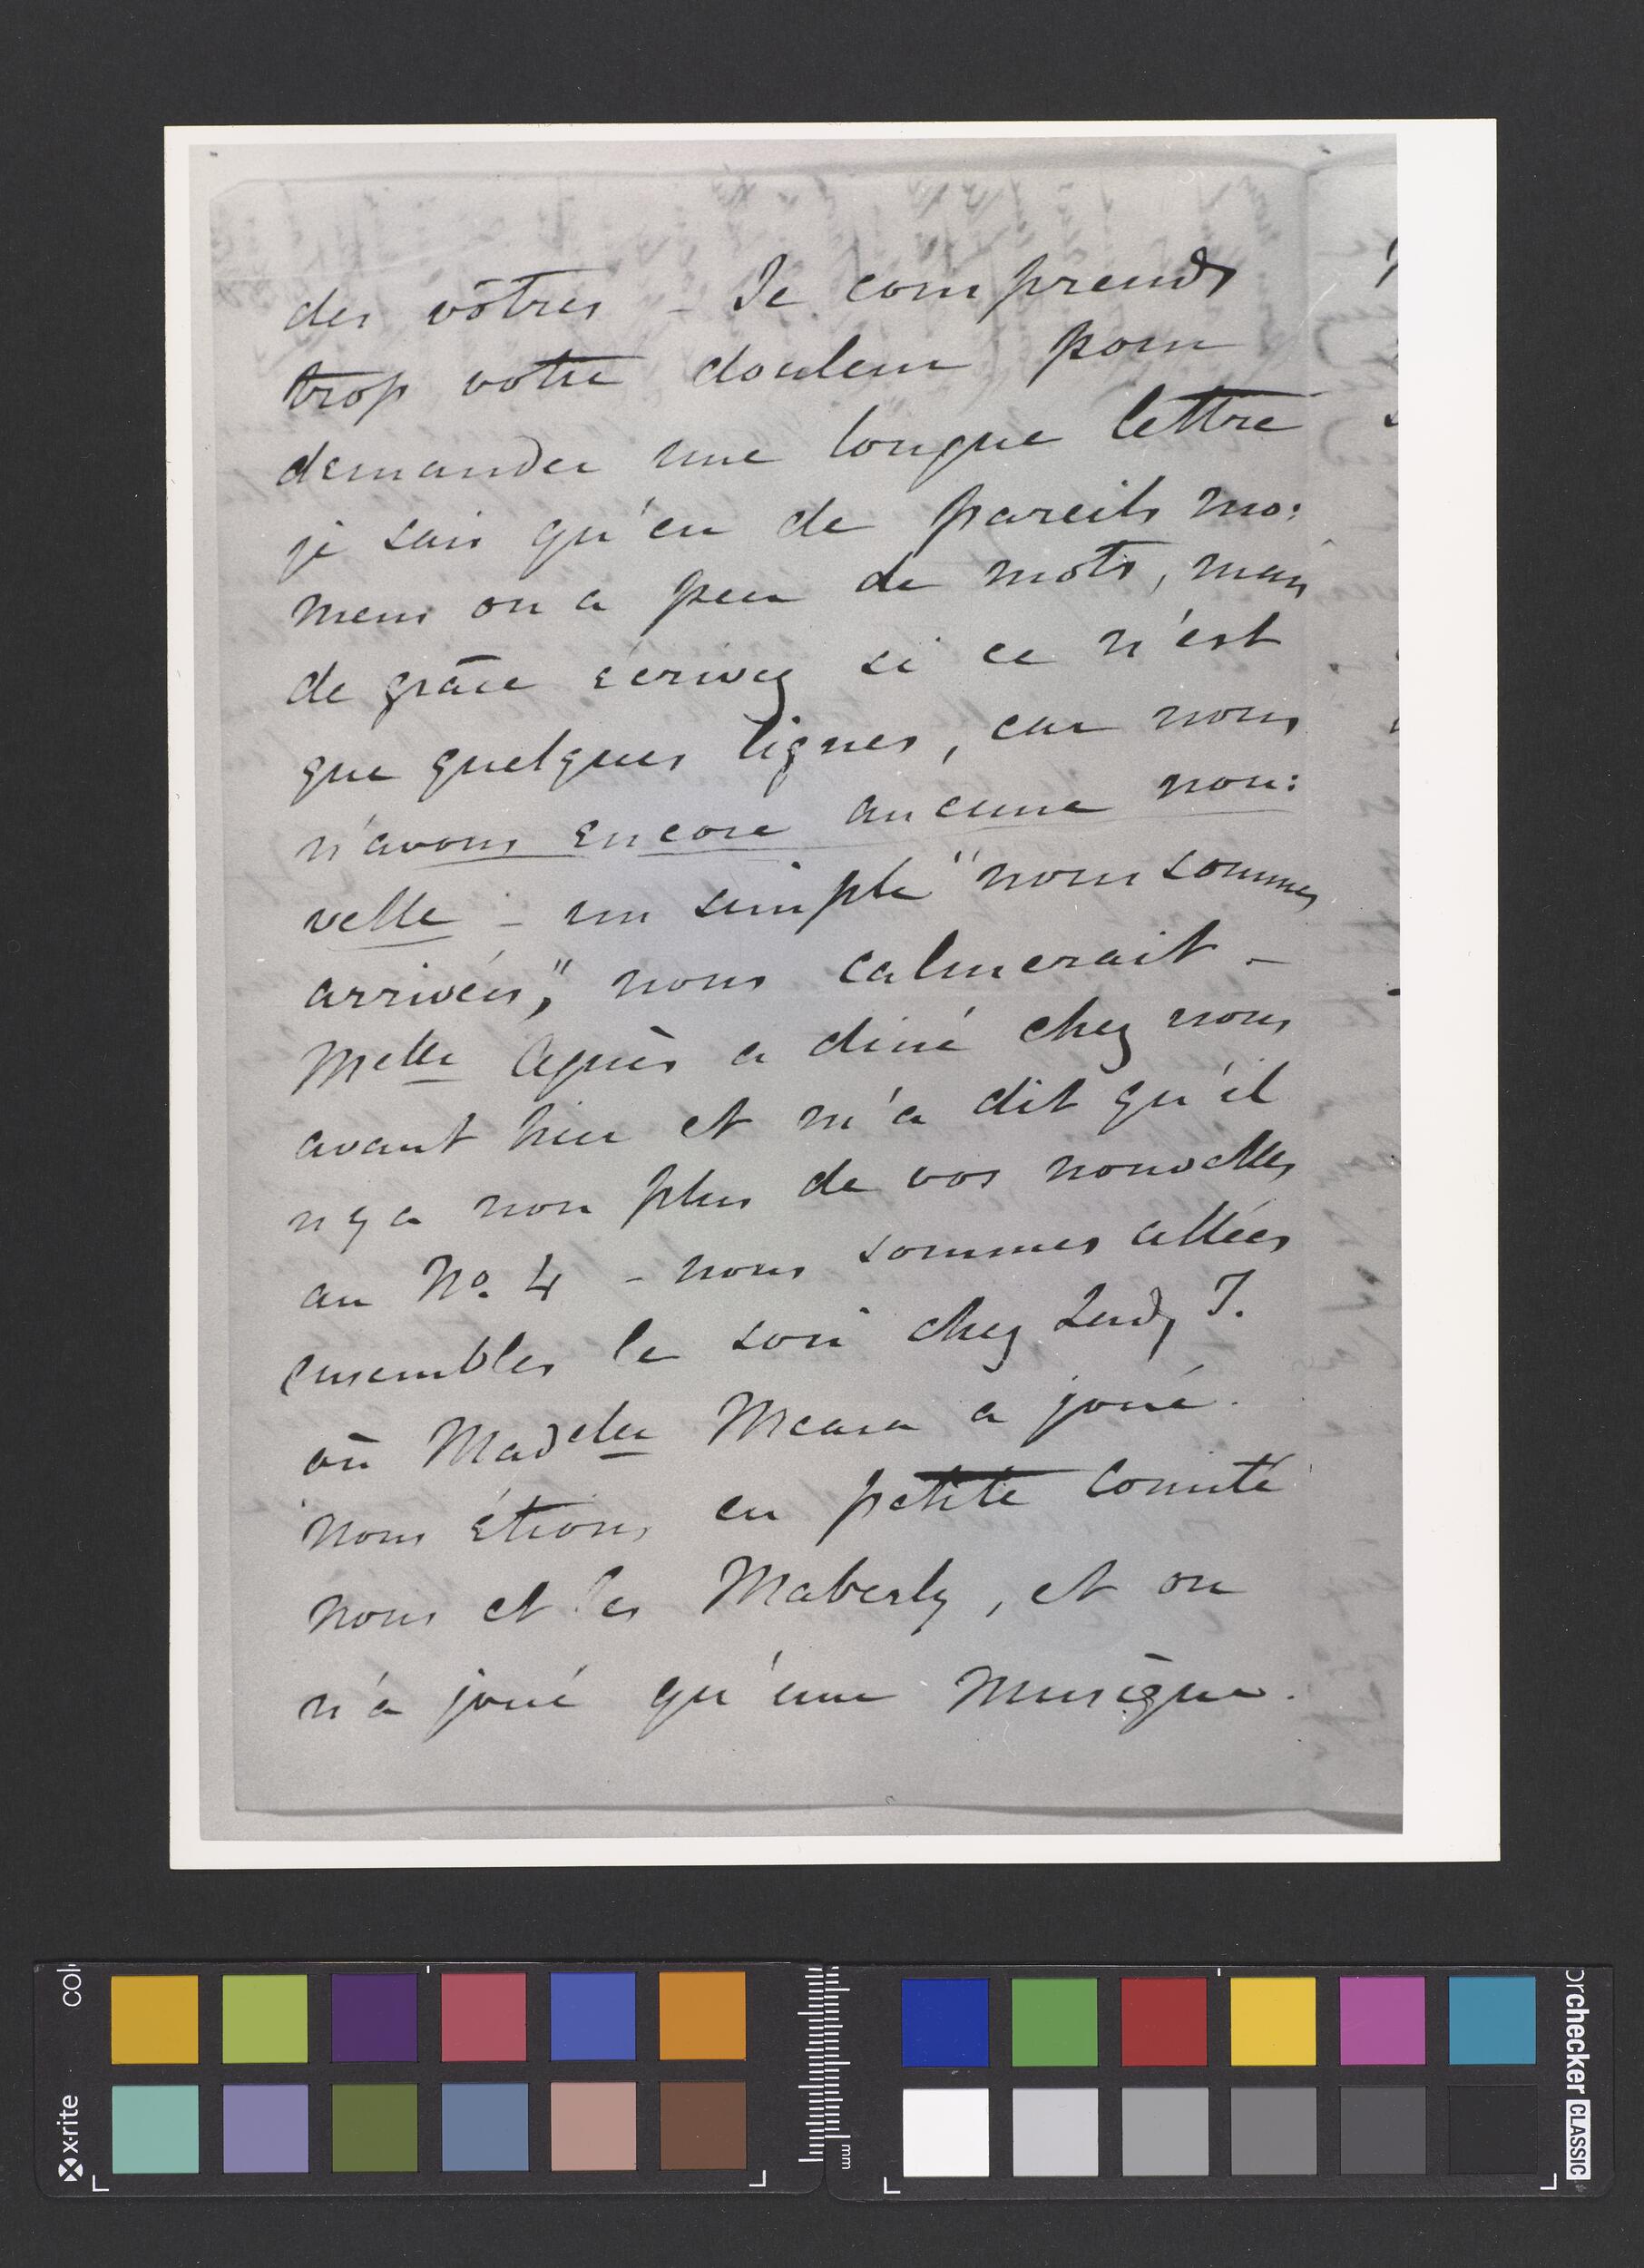 des vôtres – Je comprends
trop votre douleur pour
demander une longue lettre
je sais qu'en de pareils mo:
mens on a peu de mots, mais
de grâce écrivez si ce n'est
que quelques lignes, car nous
n'avons encore aucune nou:
velle – un simple "nous sommes
arrivés," nous calmerait –
Melle Agnès a diné chez nous
avant hier et m'a dit qu'il
n'y a non plus de vos nouvelles
au No. 4 – nous sommes allées
ensembles le soir chez Lady T.
où Madelle Meara a joué.
nous étions en petite comité
nous et les Maberly, et on
n'a joué qu'une musique.
colorchecker CLASSIC
x-rite
mm